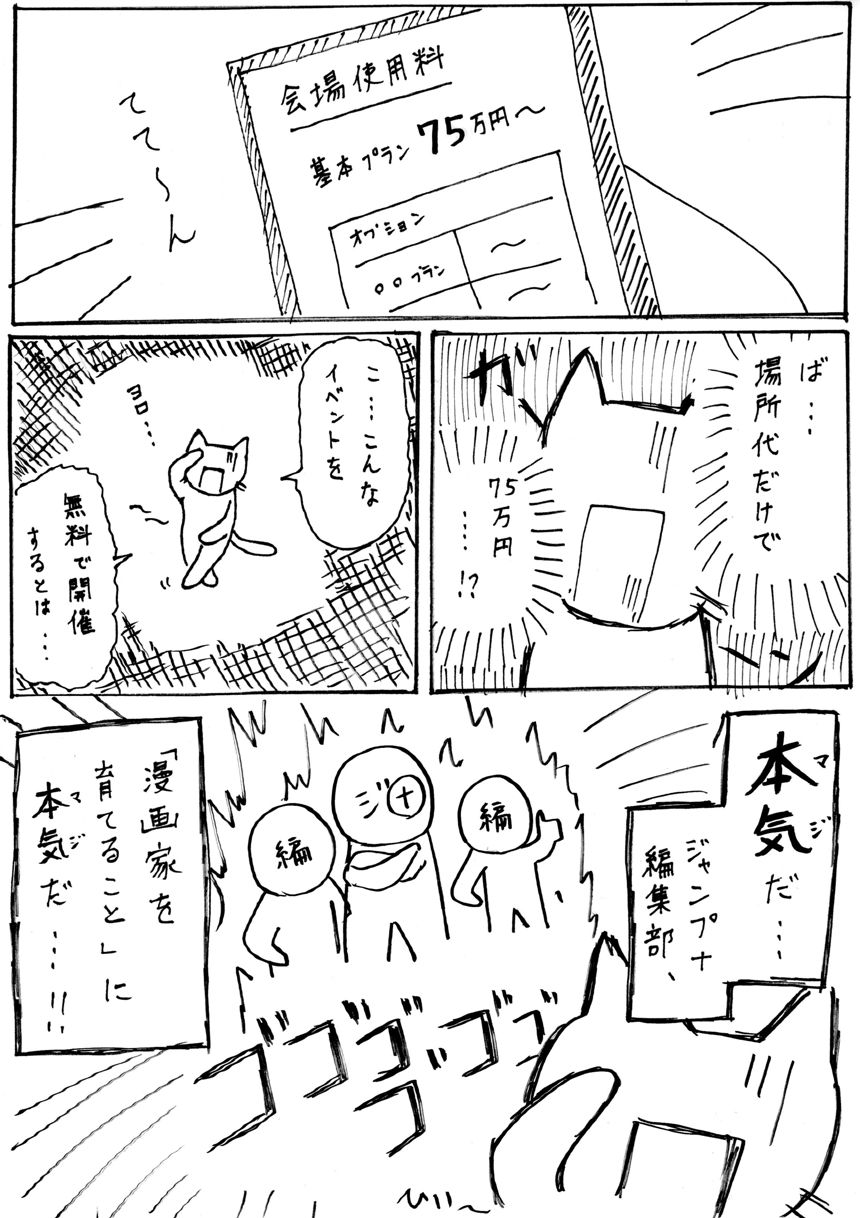 会場使用料
基本プラン 75万円〜
オプション
〜
○○プラン
〜
てて〜ん
ば…
場所代だけで
75万円
…!?
ガーン
こ…こんな
イベントを
ヨロ…
無料で開催
するとは…
本気だ…
マジ
ジャンプ＋
編集部、
編
ジ＋
編
「漫画家を
育てること」に
本気だ…!!
マジ
ゴゴゴゴゴゴ
ひいい〜